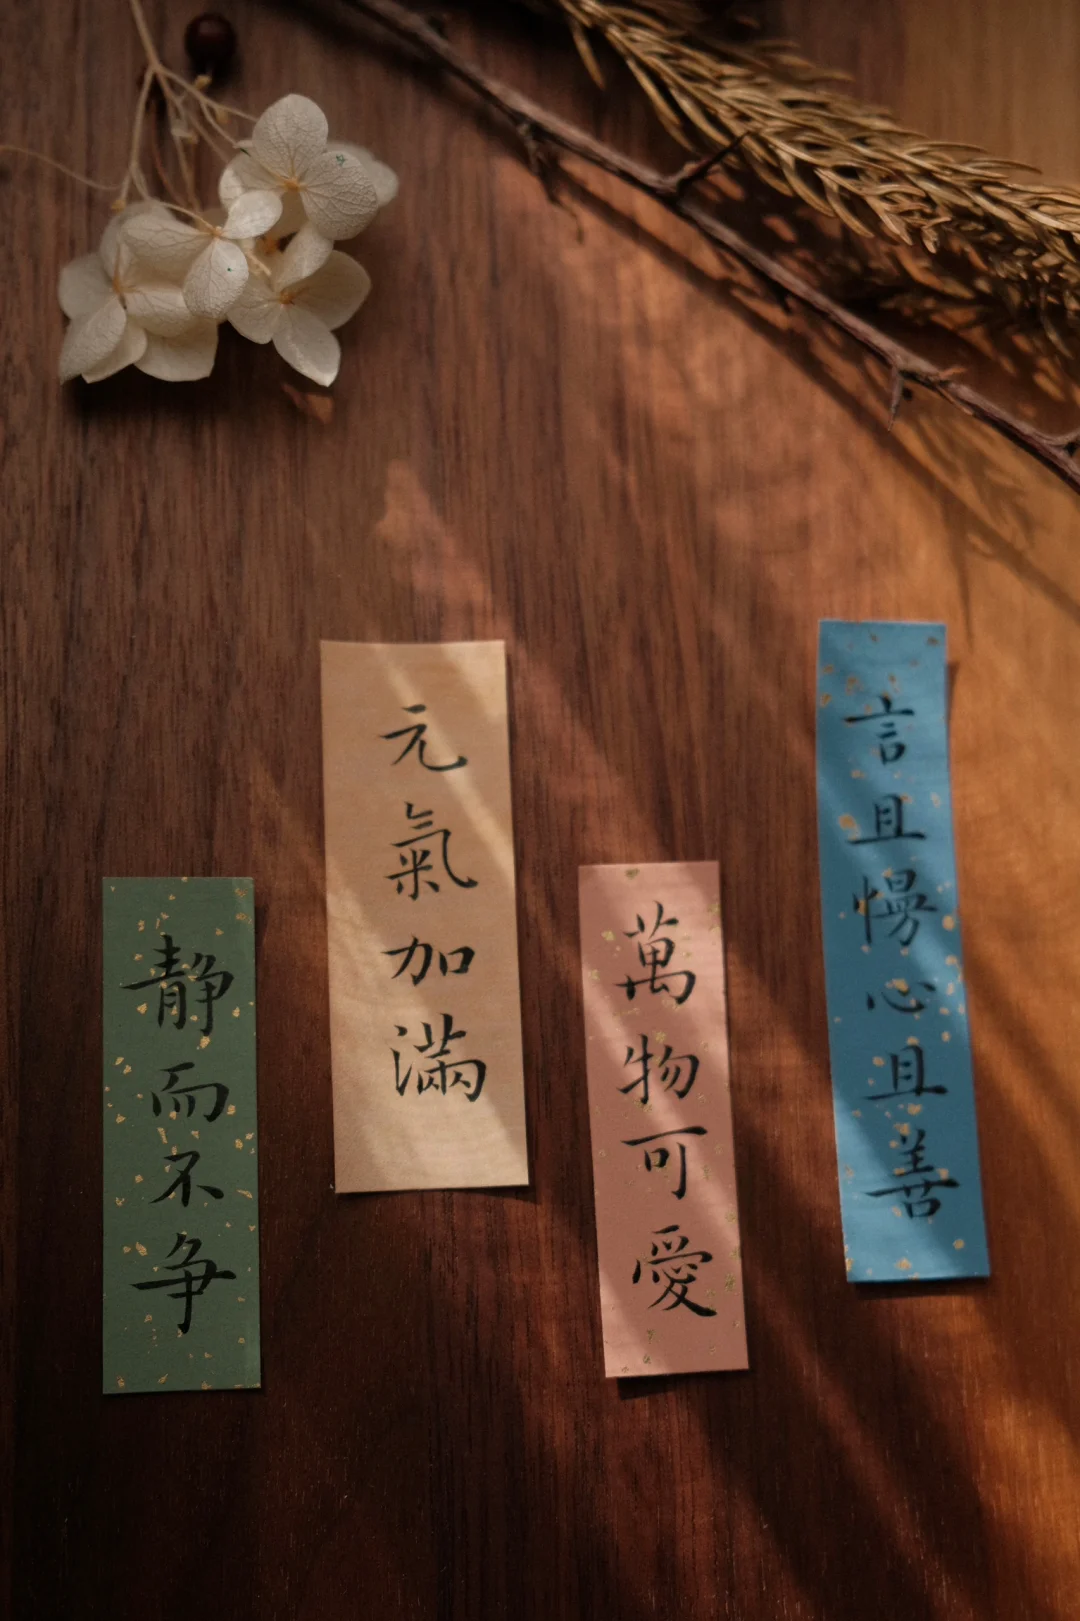 静而不争
元氣加滿
萬物可愛
言且慢心且善